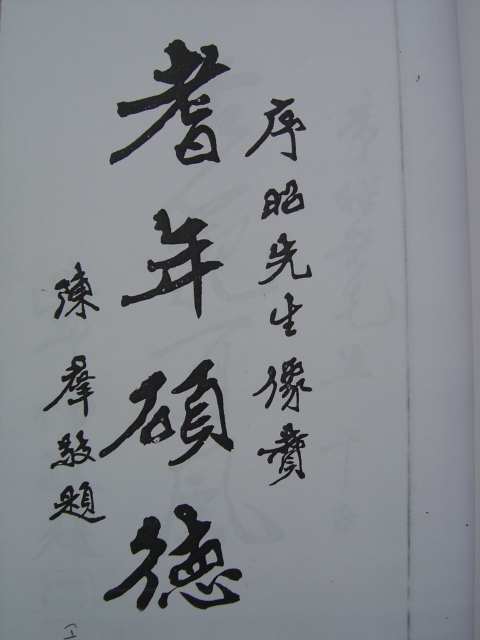 序昭先生像贊
耆年碩德
陳群敬題